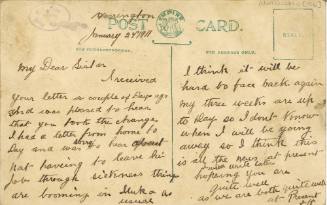 Harrington
January 24 1911
POST CARD.
EMPIRE
My Dear Sister
I received
Your letter a couple of days ago
and was pleased to hear
that you took the change
I had a letter from home to
Day and was sorry to hear about
Pat having to leave his
Job through sickness things
are booming in
as usual
I think it will be
hard to face back again
my three weeks are up
to Day so I dont know
when I will be going
away so I think this
is all the news at present
write later
hopeing you are
Quite well
as we are both quite well
at Present